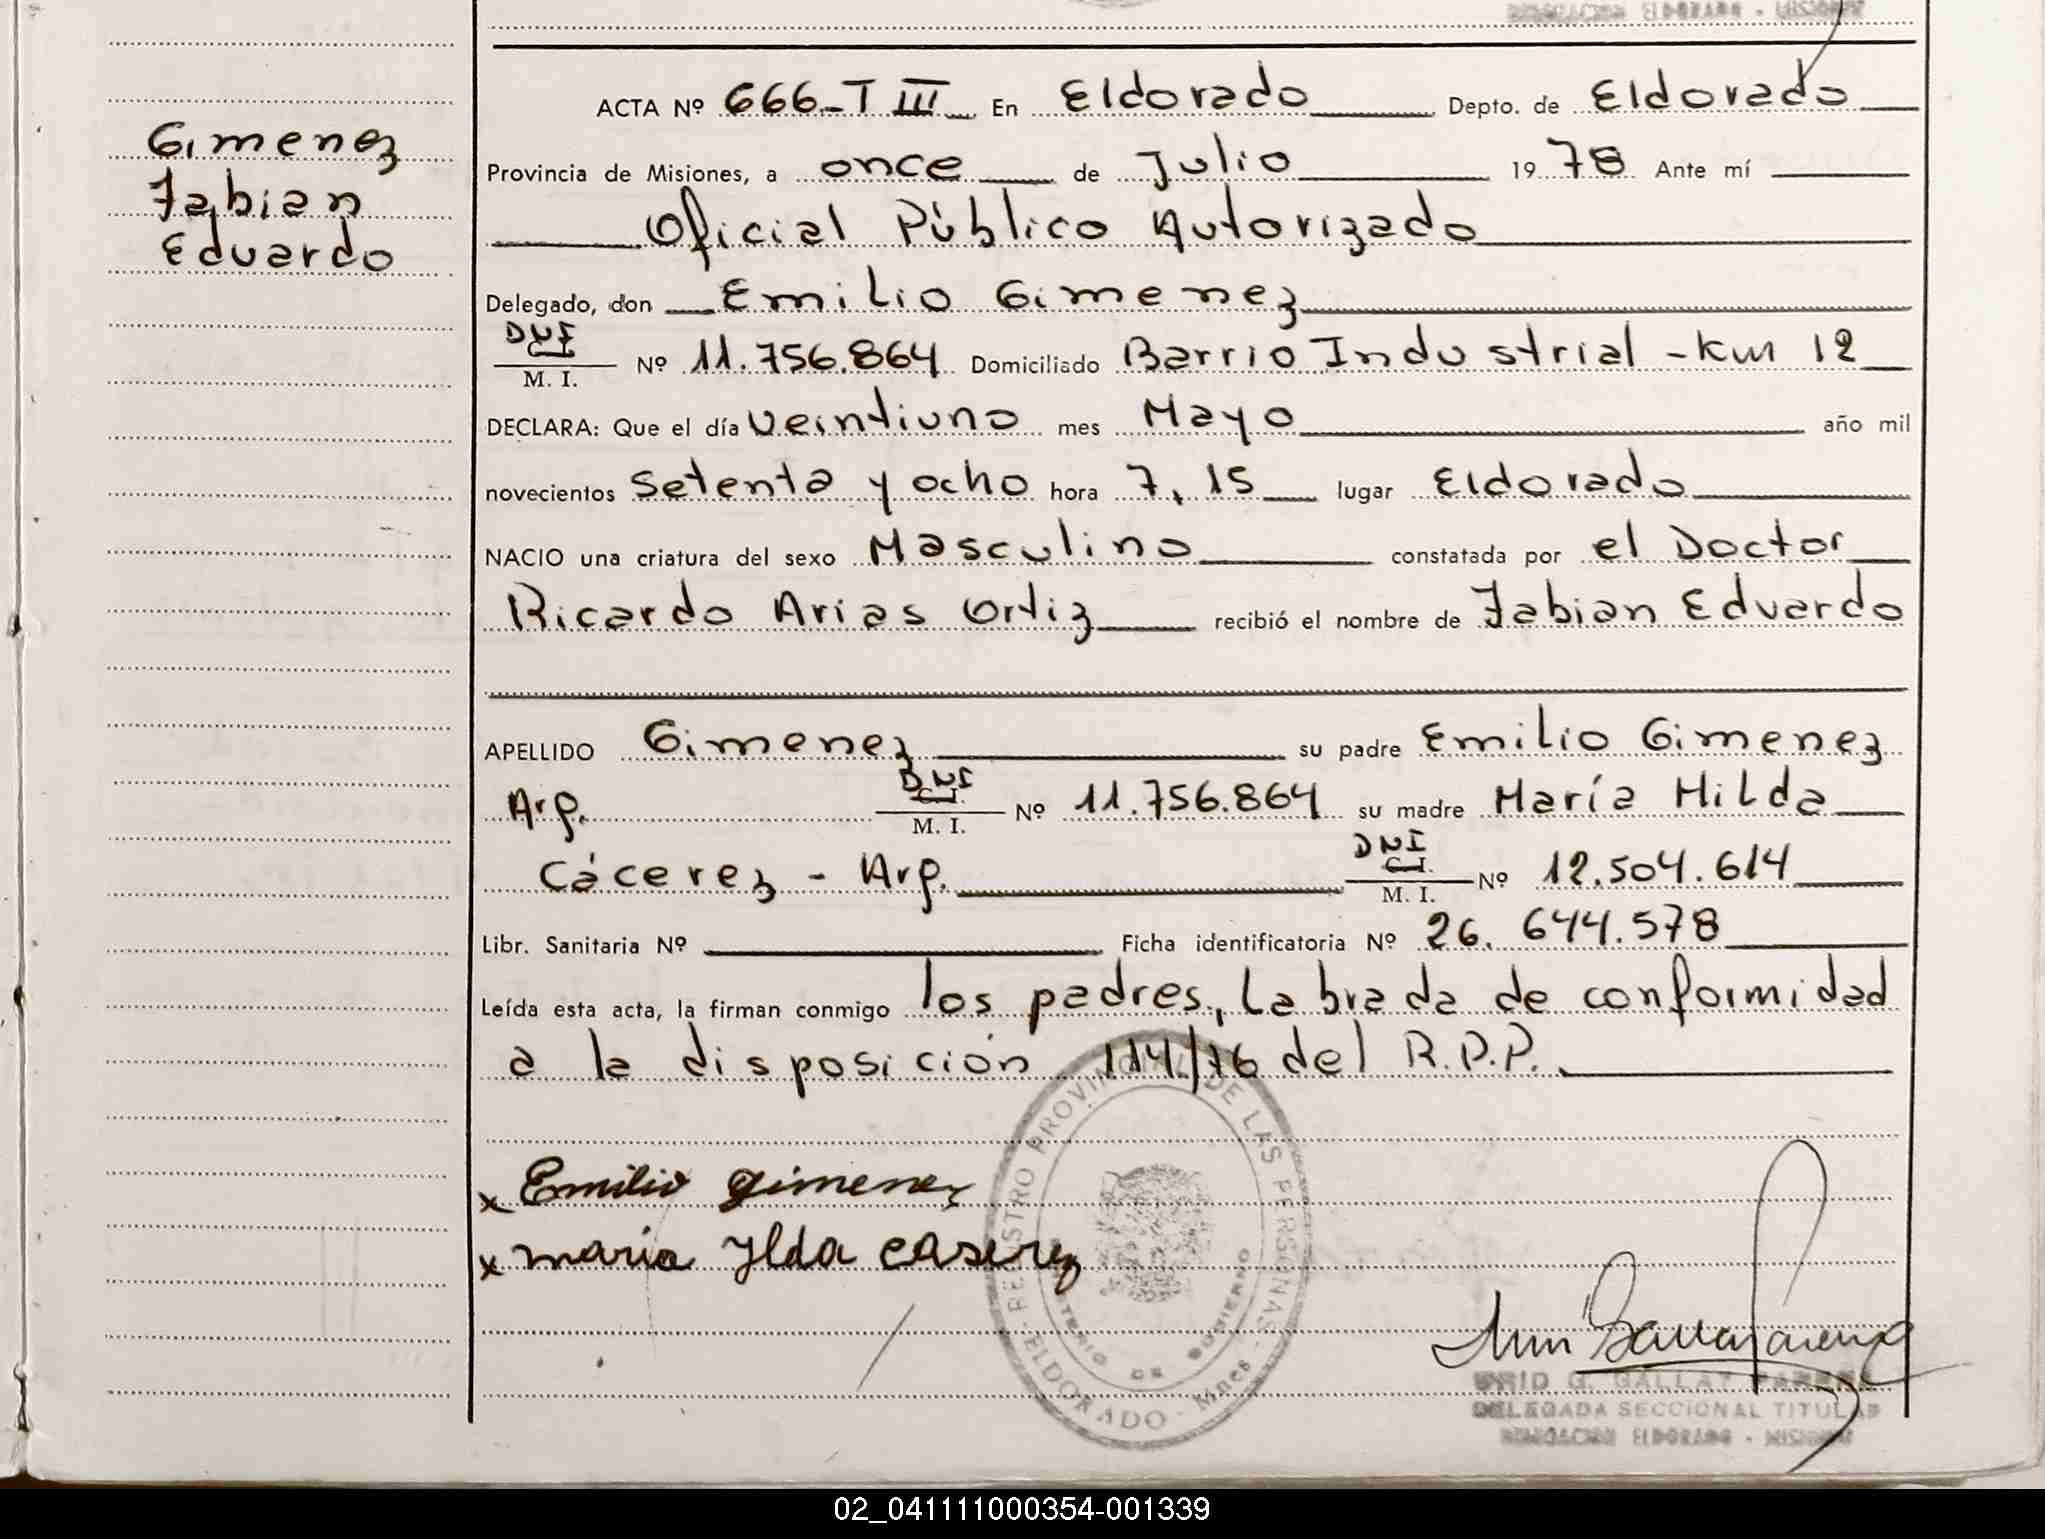 DELEGACION ELDORADO - MISIONES
ACTA Nº 666-T III En Eldorado Depto. de Eldorado
Gimenez
Fabian
Eduardo
Provincia de Misiones, a once de Julio 1978 Ante mí
Oficial Público Autorizado
Delegado, don Emilio Gimenez
DNI
C. I.
M. I. Nº 11.756.864 Domiciliado Barrio Industrial - Km 12
DECLARA: Que el día veintiuno mes Mayo año mil
novecientos setenta y ocho hora 7,15 lugar Eldorado
NACIO una criatura del sexo Masculino constatada por el Doctor
Ricardo Arias Ortiz recibió el nombre de Fabian Eduardo
APELLIDO Gimenez su padre Emilio Gimenez
Arg. DNI C. I. M. I. Nº 11.756.864 su madre María Hilda
Cácerez - Arg. DNI C. I. M. I. Nº 12.504.614
Libr. Sanitaria Nº Ficha identificatoria Nº 26.644.578
Leída esta acta, la firman conmigo los padres, labrada de conformidad
a la disposición 114/76 del R.P.P.
x Emilio Gimenez
x maria Ylda caserez
REGISTRO PROVINCIAL DE LAS PERSONAS
MINISTERIO DE GOBIERNO
ELDORADO - Mnes
G. GALLAY
DELEGADA SECCIONAL TITULAR
DELEGACION ELDORADO - MISIONES
02_041111000354-001339